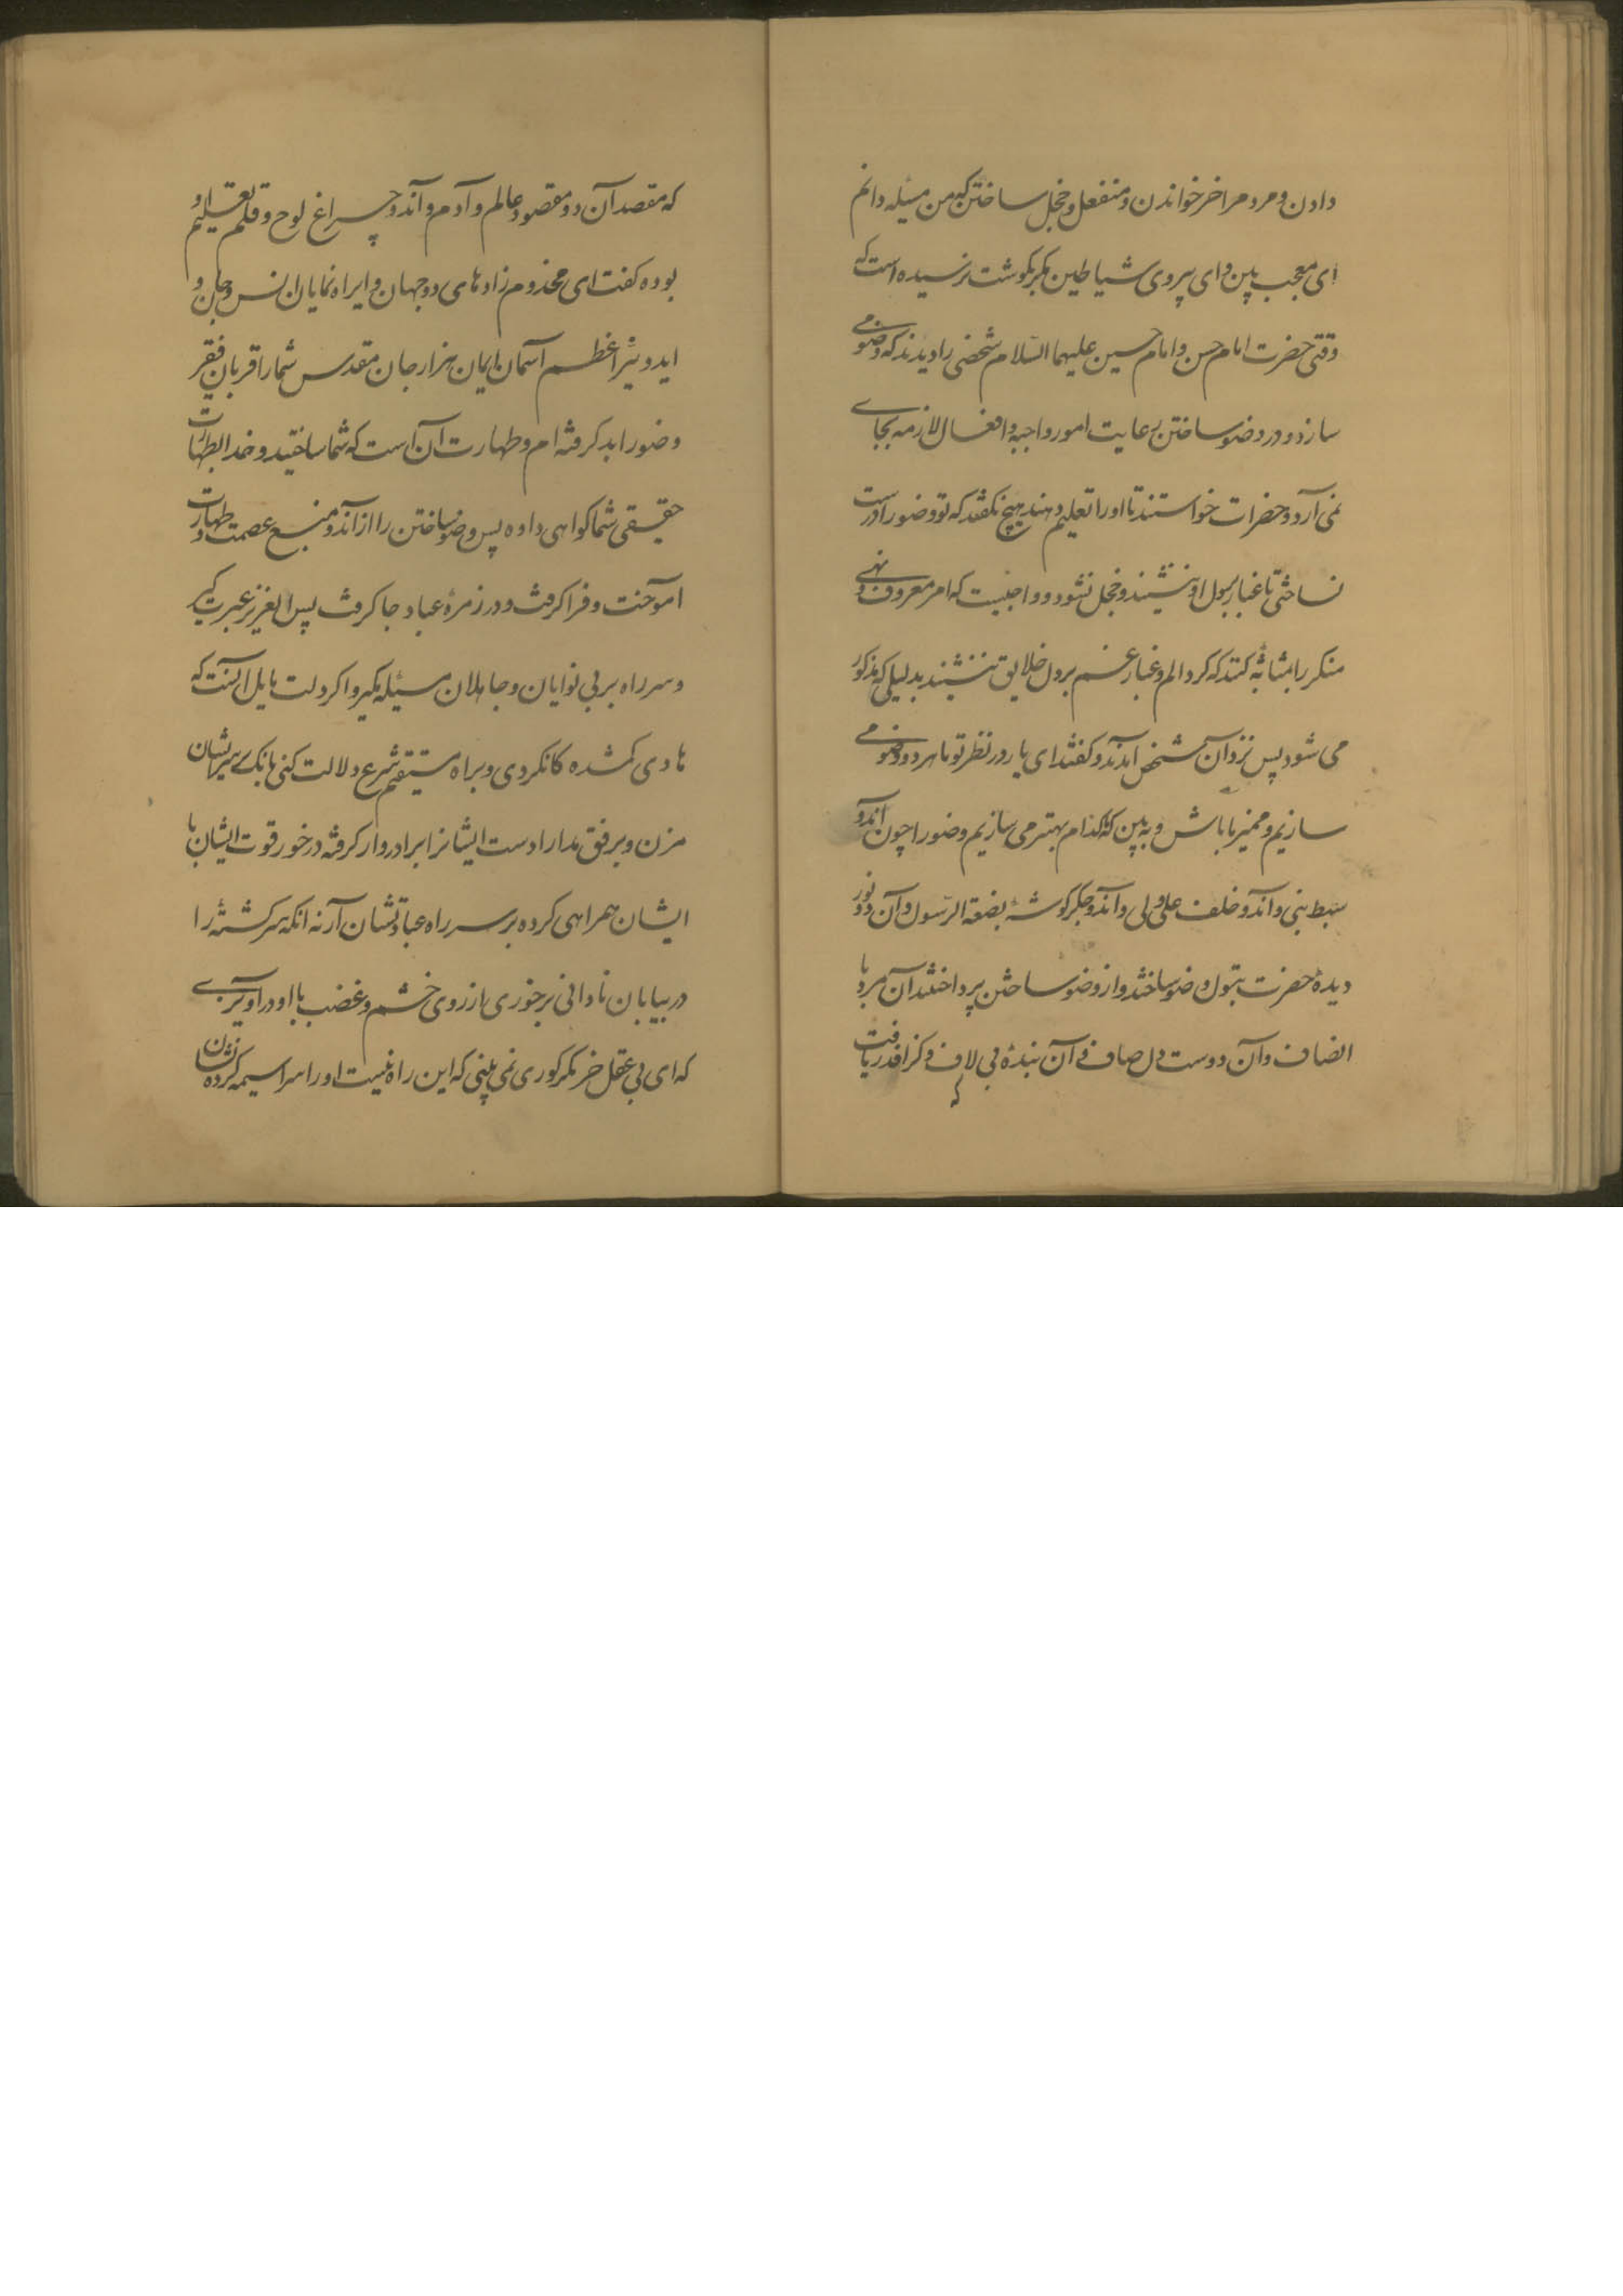 دادن و مردم را خر خواندن و منفعل و خجل ساختن که من مسئله دانم
ای معجب بین و ای پیروی شیاطین مگر بگوشت نرسیده است که
وقتی حضرت امام حسن و امام حسین علیهما السّلام شخصی را دیدند که وضو می
سازد و در وضو ساختن رعایت امور واجبه و افعال لازمه بجای
نمی آرد و حضرات خواستند تا او را تعلیم دهند هیچ نکفتند که تو وضو را درست
نساختی تا غبار بر دل او ننشیند و خجل نشود و واجبست که امر معروف و نهی
منکر را بمثابهٔ کنند که کرد الم و غبار غم بر دل خلایق ننشیند بدلیلی که مذکور
می شود پس نزد آن شخص آمدند و کفتند ای یار در نظر تو ما هر دو وضو می
سازیم و ممیز ما باش و به بین که کدام بهتر می سازیم وضو را چون آندو
سبط نبی و آندو خلف علی ولی و آندو جکر کوشهٔ بضعة الرّسول و آن دو نور
دیدهٔ حضرت بتول وضو ساختند و از وضو ساختن پرداختند آن مرد با
انصاف و آن دوست دل صاف و آن بندهٔ بی لاف و کزاف دریافت
که
که مقصد آن دو مقصود عالم و آدم و آندو چراغ لوح و قلم تعلیم او
بوده کفت ای مخدوم زادهای دو جهان و ای راه نمایان انس و جان و
ای دو نیّر اعظم آسمان ایمان هزار جان مقدس شما را قربان فقیر
وضو را بد کرفته ام و طهارت آن است که شما ساختید و خدا بطهارت
حقیقی شما کواهی داده پس وضو ساختن را از آندو منبع عصمت و طهارت
آموخت و فرا کرفت و در زمرهٔ عباد جا کرفت پس ای عزیز عبرت کیر
و سر راه بر بی نوایان و جاهلان مسئله مکیر و اکر دلت مایل آنست که
هادی کمشده کان کردی و براه مستقیم شرع دلالت کنی بانک بر ایشان
مزن و برفق مدارا دست ایشانرا برادروار کرفته در خور قوت ایشان با
ایشان همراهی کرده بر سر راه عبادتشان آر نه آنکه سرکشته را
در بیابان نادانی برخوری از روی خشم و غضب با او در آویزی
که ای بی عقل خر مکر کوری نمی بینی که این راه نیست او را سراسیمه کرده